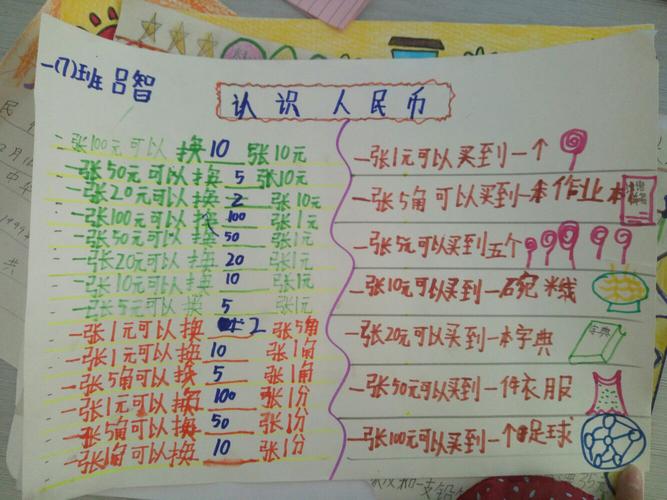 一(7)班 吕智
认识人民币
一张100元可以换10张10元
一张50元可以换5张10元
一张20元可以换2张10元
一张100元可以换100张1元
一张50元可以换50张1元
一张20元可以换20张1元
一张10元可以换10张1元
一张5元可以换5张1元
一张1元可以换2张5角
一张1元可以换10张1角
一张5角可以换5张1角
一张1元可以换100张1分
一张5角可以换50张1分
一张1角可以换10张1分
一张1元可以买到一个
一张5角可以买到一本作业本
一张5元可以买到五个
一张10元可以买到一碗米线
一张20元可以买到一本字典
字典
一张50元可以买到一件衣服
一张100元可以买到一个足球